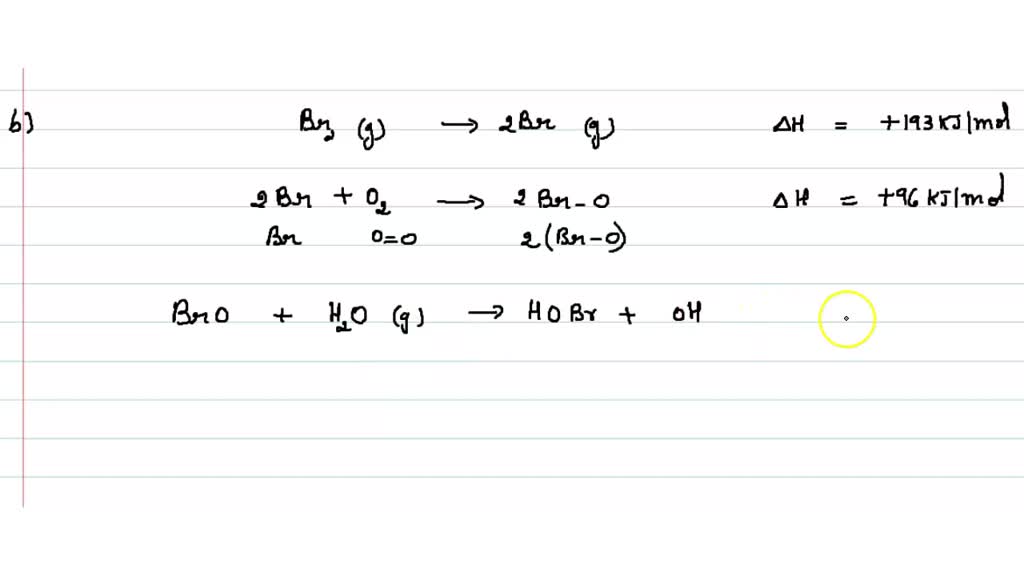 b) Br₂ (g) → 2Br (g) ΔH = +193 KJ/mol
2Br + O₂ → 2 Br-O ΔH = +96 KJ/mol
Br O=O 2(Br-O)
BrO + H₂O (g) → HOBr + OH